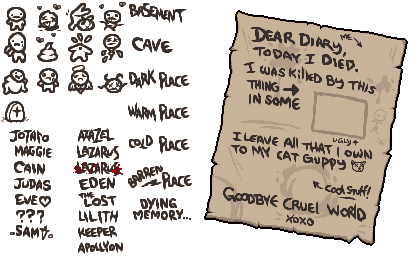 BASEMENT
CAVE
DARK PLACE
WARM PLACE
COLD PLACE
BARREN PLACE
DYING
MEMORY...
JOTARO
MAGGIE
CAIN
JUDAS
EVE♡
???
SAMS
AZAZEL
LAZARUS
LAZARUS
EDEN
THE
LOST
LILITH
KEEPER
APOLLYON
DEAR DIARY,
ME
TODAY I DIED.
I WAS KILLED BY THIS
THING →
IN SOME
UGLY↑
I LEAVE ALL THAT I OWN
TO MY CAT GUPPY
COOL STUFF!
GOODBYE CRUEL WORLD
XOXO